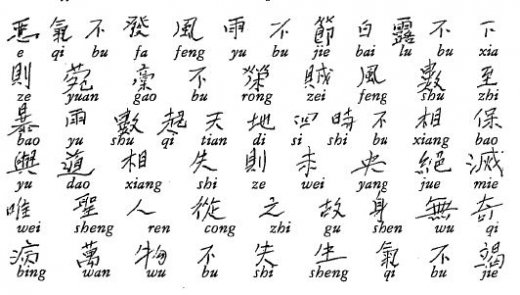 惡 氣 不 發 風 雨 不 節 白 露 不 下
e qi bu fa feng yu bu jie bai lu bu xia
則 菀 槀 不 榮 賊 風 數 至
ze yuan gao bu rong zei feng shu zhi
暴 雨 數 起 天 地 四 時 不 相 保
bao yu shu qi tian di si shi bu xiang bao
與 道 相 失 則 未 央 絕 滅
yu dao xiang shi ze wei yang jue mie
唯 聖 人 從 之 故 身 無 奇
wei sheng ren cong zhi gu shen wu qi
病 萬 物 不 失 生 氣 不 竭
bing wan wu bu shi sheng qi bu jie